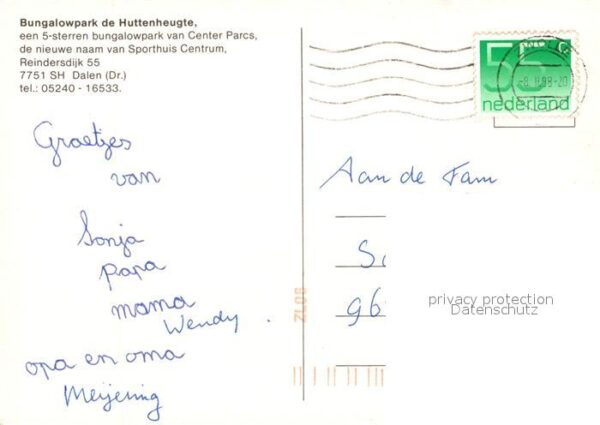 Bungalowpark de Huttenheugte,
een 5-sterren bungalowpark van Center Parcs,
de nieuwe naam van Sporthuis Centrum,
Reindersdijk 55
7751 SH Dalen (Dr.)
tel.: 05240 - 16533.
55 c
nederland
Groetjes
van
Sonja
papa
mama
Wendy.
opa en oma
Meijering
Aan de Fam
96
privacy protection
Datenschutz